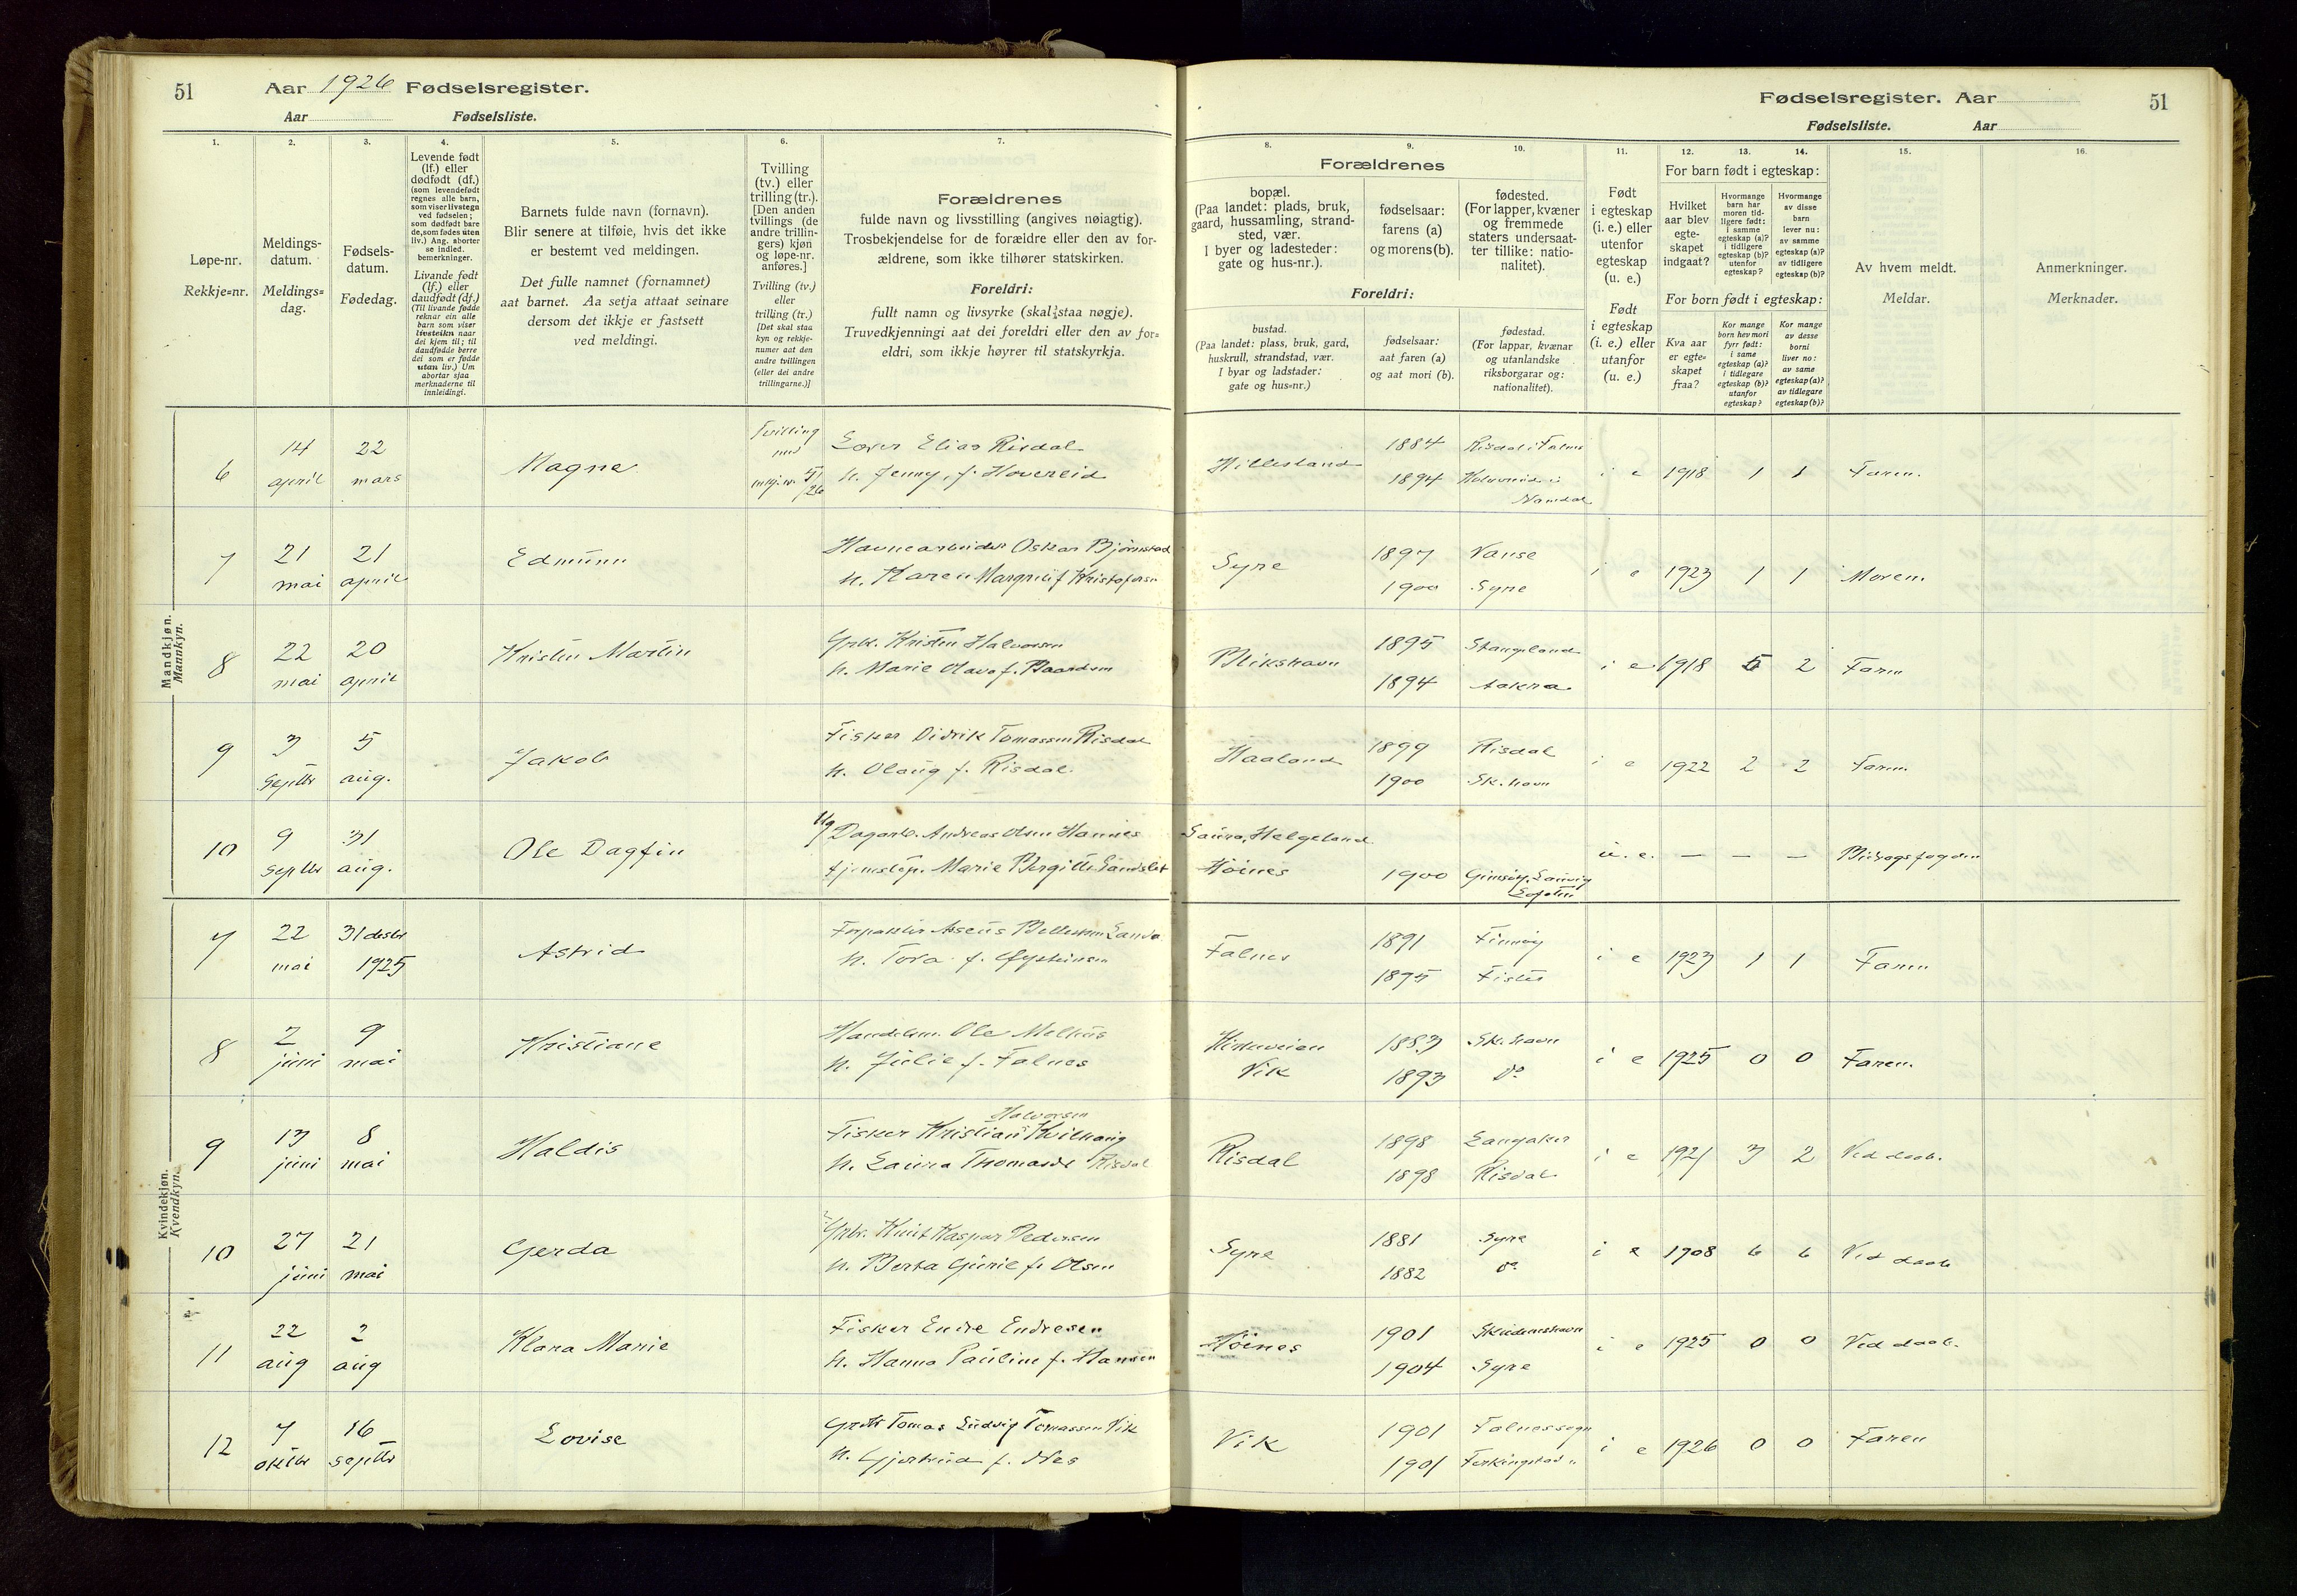 51
Aar 1926 Fødselsregister.
Aar Fødselsliste.
1. 2. 3. 4. 5. 6. 7.
Løpe-nr.
Rekkje=nr.
Meldings-
datum.
Meldings=
dag.
Fødsels-
datum.
Fødedag.
Levende født
(lf.) eller
dødfødt (df.)
(som levendefødt
regnes alle barn,
som viser livstegn
ved fødselen;
som dødfødt bare
de, som fødes uten
liv.) Ang. aborter
se indled.
bemerkninger.
Livande født
(lf.) eller
daudfødt (df.)
(Til livande fødde
reknar ein alle
barn som viser
livsteikn naar
dei kjem til; til
daudfødde berre
dei som er fødde
utan liv.) Um
abortar sjaa
merknaderne til
innleidingi.
Barnets fulde navn (fornavn).
Blir senere at tilføie, hvis det ikke
er bestemt ved meldingen.
Det fulle namnet (fornamnet)
aat barnet. Aa setja attaat seinare
dersom det ikkje er fastsett
ved meldingi.
Tvilling
(tv.) eller
trilling (tr.).
[Den anden
tvillings (de
andre trillin-
gers) kjøn
og løpe-nr.
anføres.]
Tvilling (tv.)
eller
trilling (tr.)
[Det skal staa
kyn og rekkje-
numer aat den
andre tvillingen
(eller dei andre
trillingarne.)]
Forældrenes
fulde navn og livsstilling (angives nøiagtig).
Trosbekjendelse for de forældre eller den av for-
ældrene, som ikke tilhører statskirken.
Foreldri:
fullt namn og livsyrke (skal staa nøgje).
Truvedkjenningi aat dei foreldri eller den av for=
eldri, som ikkje høyrer til statskyrkja.
Fødselsregister. Aar
51
Fødselsliste. Aar
8. 9. 10. 11. 12. 13. 14. 15. 16.
Forældrenes
bopæl.
(Paa landet: plads, bruk,
gaard, hussamling, strand-
sted, vær.
I byer og ladesteder:
gate og hus-nr.).
fødselsaar:
farens (a)
og morens (b).
fødested.
(For lapper, kvæner
og fremmede
staters undersaat-
ter tillike: natio-
nalitet).
Foreldri:
bustad.
(Paa landet: plass, bruk, gard,
huskrull, strandstad, vær.
I byar og ladstader:
gate og hus=nr.)
fødselsaar:
aat faren (a)
og aat mori (b).
fødestad.
(For lappar, kvænar
og utanlandske
riksborgarar og:
nationalitet).
Født
i egteskap
(i. e.) eller
utenfor
egteskap
(u. e.)
Født
i egteskap
(i. e.) eller
utanfor
(u. e.)
For barn født i egteskap:
Hvilket
aar blev
egte-
skapet
indgaat?
Hvormange
barn har
moren tid-
ligere født:
i samme
egteskap (a)?
i tidligere
egteskap (b)?
utenfor
egteskap?
Hvormange
av disse
barn
lever nu:
av samme
egteskap (a)?
av tidligere
egteskap (b)?
For born født i egteskap:
Kva aar
er egte=
skapet
fraa?
Kor mange
born hev mori
fyrr født:
i same
egteskap (a)?
i tidlegare
egteskap (b)?
utanfor
egteskap?
Kor mange
av desse
borni
liver no:
av same
egteskap (a)?
av tidlegare
egteskap (b)?
Av hvem meldt.
Meldar.
Anmerkninger.
Merknader.
Mandkjøn.
Mannkyn.
6 14 april 22 mars Magne Tvilling med 5/26
Elias Risdal
h. Jenny, f. Hovereid
Hillesland 1884 Risdal i Falnes
1894 Namdal
i e 1918 1 1 Faren.
7 21 mai 21 april Edmunn
Havnearbeider Oskar Bjørnstad
h. Karen Margrit f Kristofersen
Syre 1897 Vanse
1900 Syre
i e 1923 1 1 Moren.
8 22 mai 20 april Kristen Martin
Grbr. Kristen Halvorsen
h. Marie Olava f. Baardsen
Blikshavn 1895 Stangeland
1894 Aakra
i e 1918 5 2 Faren
9 3 septbr 5 aug. Jakob
Fisker Didrik Tomassen Risdal
h. Olaug f. Risdal.
Haaland 1899 Risdal
1900 Sk.havn
i e 1922 2 2 Faren.
10 9 septbr 31 aug. Ole Dagfin
Ug Dagarb. Andreas Olsen Hannes
tjenestep. Marie Bergitte Sandslet
Saura, Helgeland
Høines 1900 Gimsøy,
u. e. — — — Bidragsfogden
Kvindekjøn.
Kvendkyn.
7 22 mai 31 desbr 1925 Astrid
Forpakter Aseus Sanda
h. Tora f. Øysteinsen
Falnes 1891 Finnøy
1895 Fister
i e 1923 1 1 Faren
8 2 juni 9 mai Kristiane
Handelsm. Ole Melhus
h. Julie f. Falnes
Kirkeveien 1883 Sk.havn
Vik 1893 do
i e 1925 0 0 Faren.
9 13 juni 8 mai Haldis
Halvorsen
Fisker Kristian Kvilhaug
h. Laura Thomasde Risdal
Risdal 1898 Langaker
1898 Risdal
i e 1921 3 2 Ved daab.
10 27 juni 21 mai Gerda
Grbr. Knut Kasper Pedersen
h. Berta Gurie f. Olsen
Syre 1881 Syre
1882 do
i e 1908 6 6 Ved daab
11 22 aug 2 aug Klara Marie
Fisker Endre Endresen
h. Hanna Pauline f. Hansen
Høines 1901 Skudeneshavn
1904 Syre
i e 1925 0 0 Ved daab.
12 7 oktbr 16 septbr Lovise
Grbr Tomas Ludvig Tomassen Vik
h. Gjertrud f. Nes
Vik 1901 Falnes sogn
1901 Ferkingstad "
i e 1926 0 0 Faren